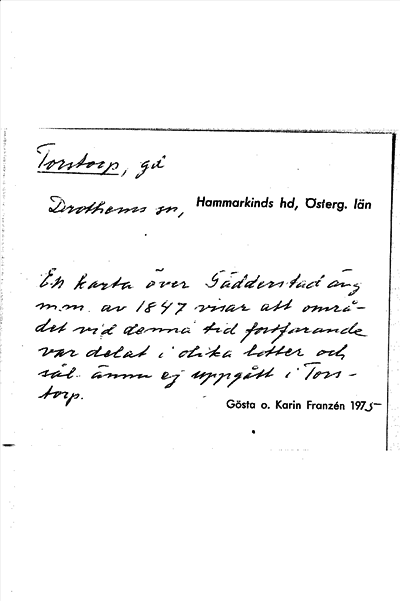 Torstorp, gd
Drothems sn,
Hammarkinds hd, Österg. län
En karta över Gädderstad äng
m.m. av 1847 visar att områ-
det vid denna tid fortfarande
var delat i olika lotter och
sål. ännu ej uppgått i Tors-
torp.
Gösta o. Karin Franzén 1975